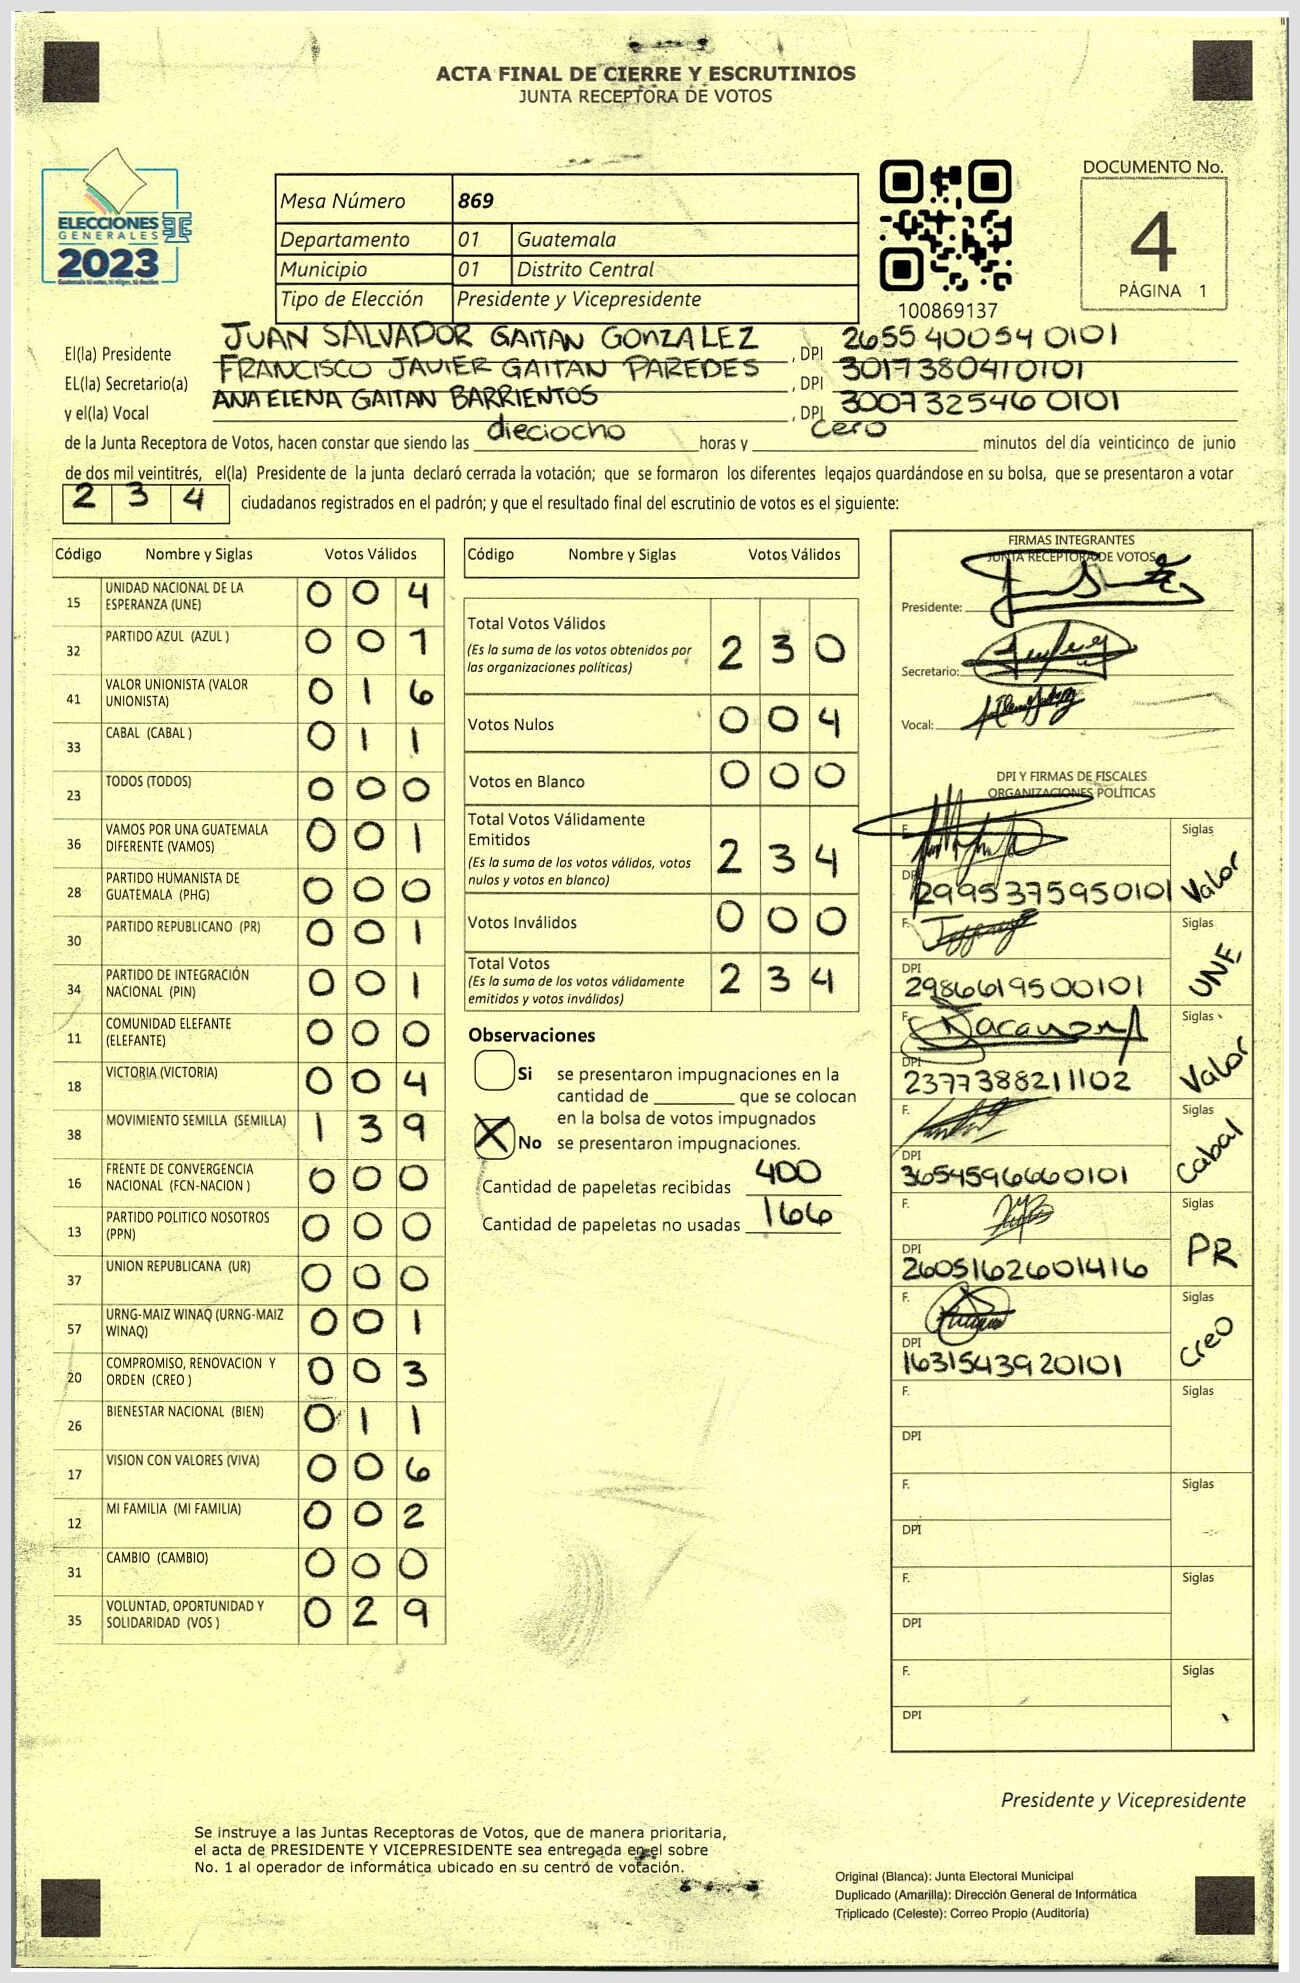 ACTA FINAL DE CIERRE Y ESCRUTINIOS
JUNTA RECEPTORA DE VOTOS
ELECCIONES
GENERALES
2023
Mesa Número 869
Departamento 01 Guatemala
Municipio 01 Distrito Central
Tipo de Elección Presidente y Vicepresidente
100869137
DOCUMENTO No.
4
PÁGINA 1
El(la) Presidente JUAN SALVADOR GAITAN GONZALEZ , DPI 2655 40054 0101
EL(la) Secretario(a) FRANCISCO JAVIER GAITAN PAREDES , DPI 3017380410101
y el(la) Vocal ANA ELENA GAITAN BARRIENTOS , DPI 300732546 0101
de la Junta Receptora de Votos, hacen constar que siendo las dieciocho horas y cero minutos del día veinticinco de junio
de dos mil veintitrés, el(la) Presidente de la junta declaró cerrada la votación; que se formaron los diferentes legajos quardándose en su bolsa, que se presentaron a votar
234 ciudadanos registrados en el padrón; y que el resultado final del escrutinio de votos es el siguiente:
Código Nombre y Siglas Votos Válidos
15 UNIDAD NACIONAL DE LA ESPERANZA (UNE) 004
32 PARTIDO AZUL (AZUL ) 001
41 VALOR UNIONISTA (VALOR UNIONISTA) 016
33 CABAL (CABAL ) 011
23 TODOS (TODOS) 000
36 VAMOS POR UNA GUATEMALA DIFERENTE (VAMOS) 001
28 PARTIDO HUMANISTA DE GUATEMALA (PHG) 000
30 PARTIDO REPUBLICANO (PR) 001
34 PARTIDO DE INTEGRACIÓN NACIONAL (PIN) 001
11 COMUNIDAD ELEFANTE (ELEFANTE) 000
18 VICTORIA (VICTORIA) 004
38 MOVIMIENTO SEMILLA (SEMILLA) 139
16 FRENTE DE CONVERGENCIA NACIONAL (FCN-NACION ) 000
13 PARTIDO POLITICO NOSOTROS (PPN) 000
37 UNION REPUBLICANA (UR) 000
57 URNG-MAIZ WINAQ (URNG-MAIZ WINAQ) 001
20 COMPROMISO, RENOVACION Y ORDEN (CREO ) 003
26 BIENESTAR NACIONAL (BIEN) 011
17 VISION CON VALORES (VIVA) 006
12 MI FAMILIA (MI FAMILIA) 002
31 CAMBIO (CAMBIO) 000
35 VOLUNTAD, OPORTUNIDAD Y SOLIDARIDAD (VOS ) 029
Código Nombre y Siglas Votos Válidos
Total Votos Válidos 230
(Es la suma de los votos obtenidos por
las organizaciones políticas)
Votos Nulos 004
Votos en Blanco 000
Total Votos Válidamente
Emitidos 234
(Es la suma de los votos válidos, votos
nulos y votos en blanco)
Votos Inválidos 000
Total Votos 234
(Es la suma de los votos válidamente
emitidos y votos inválidos)
Observaciones
Si se presentaron impugnaciones en la
cantidad de ________ que se colocan
en la bolsa de votos impugnados
X No se presentaron impugnaciones.
Cantidad de papeletas recibidas 400
Cantidad de papeletas no usadas 166
FIRMAS INTEGRANTES
JUNTA RECEPTORA DE VOTOS
Presidente:
Secretario:
Vocal:
DPI Y FIRMAS DE FISCALES
ORGANIZACIONES POLÍTICAS
F. Siglas
DPI 2995375950101 Valor
F. Siglas
DPI 2986619500101 UNE
F. Siglas
DPI 2377388211102 Valor
F. Siglas
DPI 3654596660101 Cabal
F. Siglas
DPI 2605162601416 PR
F. Siglas
DPI 1631543920101 Creo
F. Siglas
DPI
F. Siglas
DPI
F. Siglas
DPI
F. Siglas
DPI
Presidente y Vicepresidente
Se instruye a las Juntas Receptoras de Votos, que de manera prioritaria,
el acta de PRESIDENTE Y VICEPRESIDENTE sea entregada en el sobre
No. 1 al operador de informática ubicado en su centro de votación.
Original (Blanca): Junta Electoral Municipal
Duplicado (Amarilla): Dirección General de Informática
Triplicado (Celeste): Correo Propio (Auditoría)